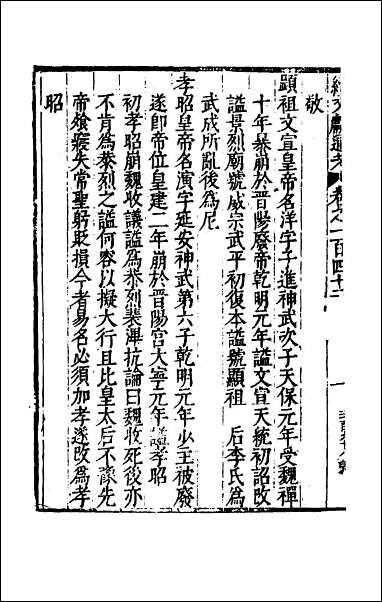 續文獻通考 卷之一百四十二
敬
顯祖文宣皇帝名洋字子進神武次子天保元年受魏禪
十年暴崩於晋陽廢帝乾明元年謚文宣天統初詔改
謚景烈廟號威宗武平初復本謚號顯祖 后李氏為
武成所亂後為尼
孝昭皇帝名演字延安神武第六子乾明元年少主被廢
遂即帝位皇建二年崩於晋陽宮大寧元年謚孝昭
初孝昭崩魏收議謚為恭烈裴澤抗論曰魏收死後亦
不肯為恭烈之謚何容以擬大行且比皇太后不豫先
帝飱寢失常聖躬貶損今者易名必須加孝遂改為孝
昭